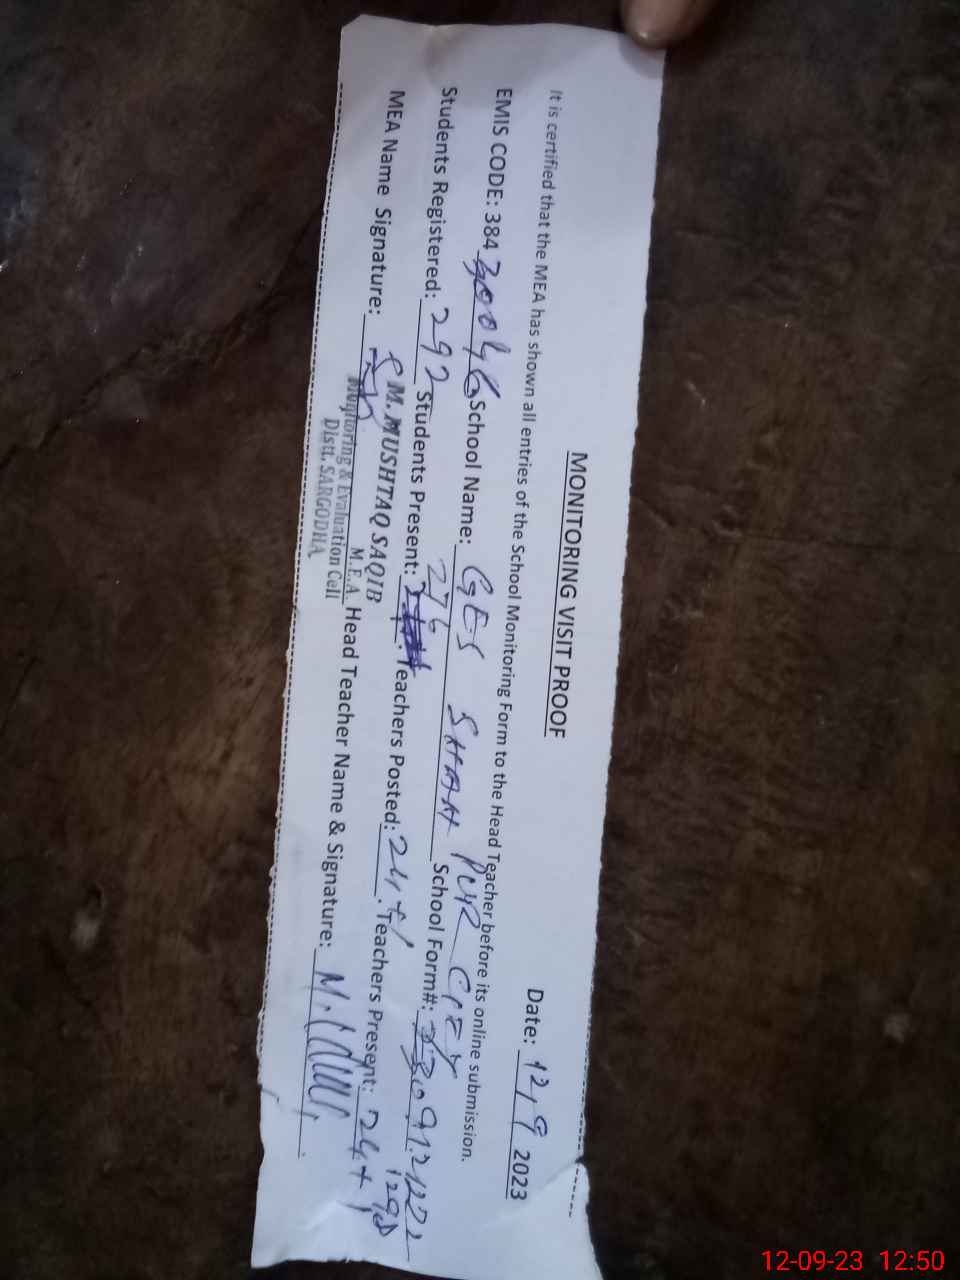 MONITORING VISIT PROOF
Date: 12/9 2023
It is certified that the MEA has shown all entries of the School Monitoring Form to the Head Teacher before its online submission.
EMIS CODE: 38430046 School Name: GES SHAH PUR CITY
Students Registered: 292 Students Present: 276 School Form#:
Teachers Posted: 24+1. Teachers Present: 24+1
MEA Name Signature: M. MUSHTAQ SAQIB
M.E.A.
Monitoring & Evaluation Cell
Distt. SARGODHA
Head Teacher Name & Signature:
12-09-23 12:50